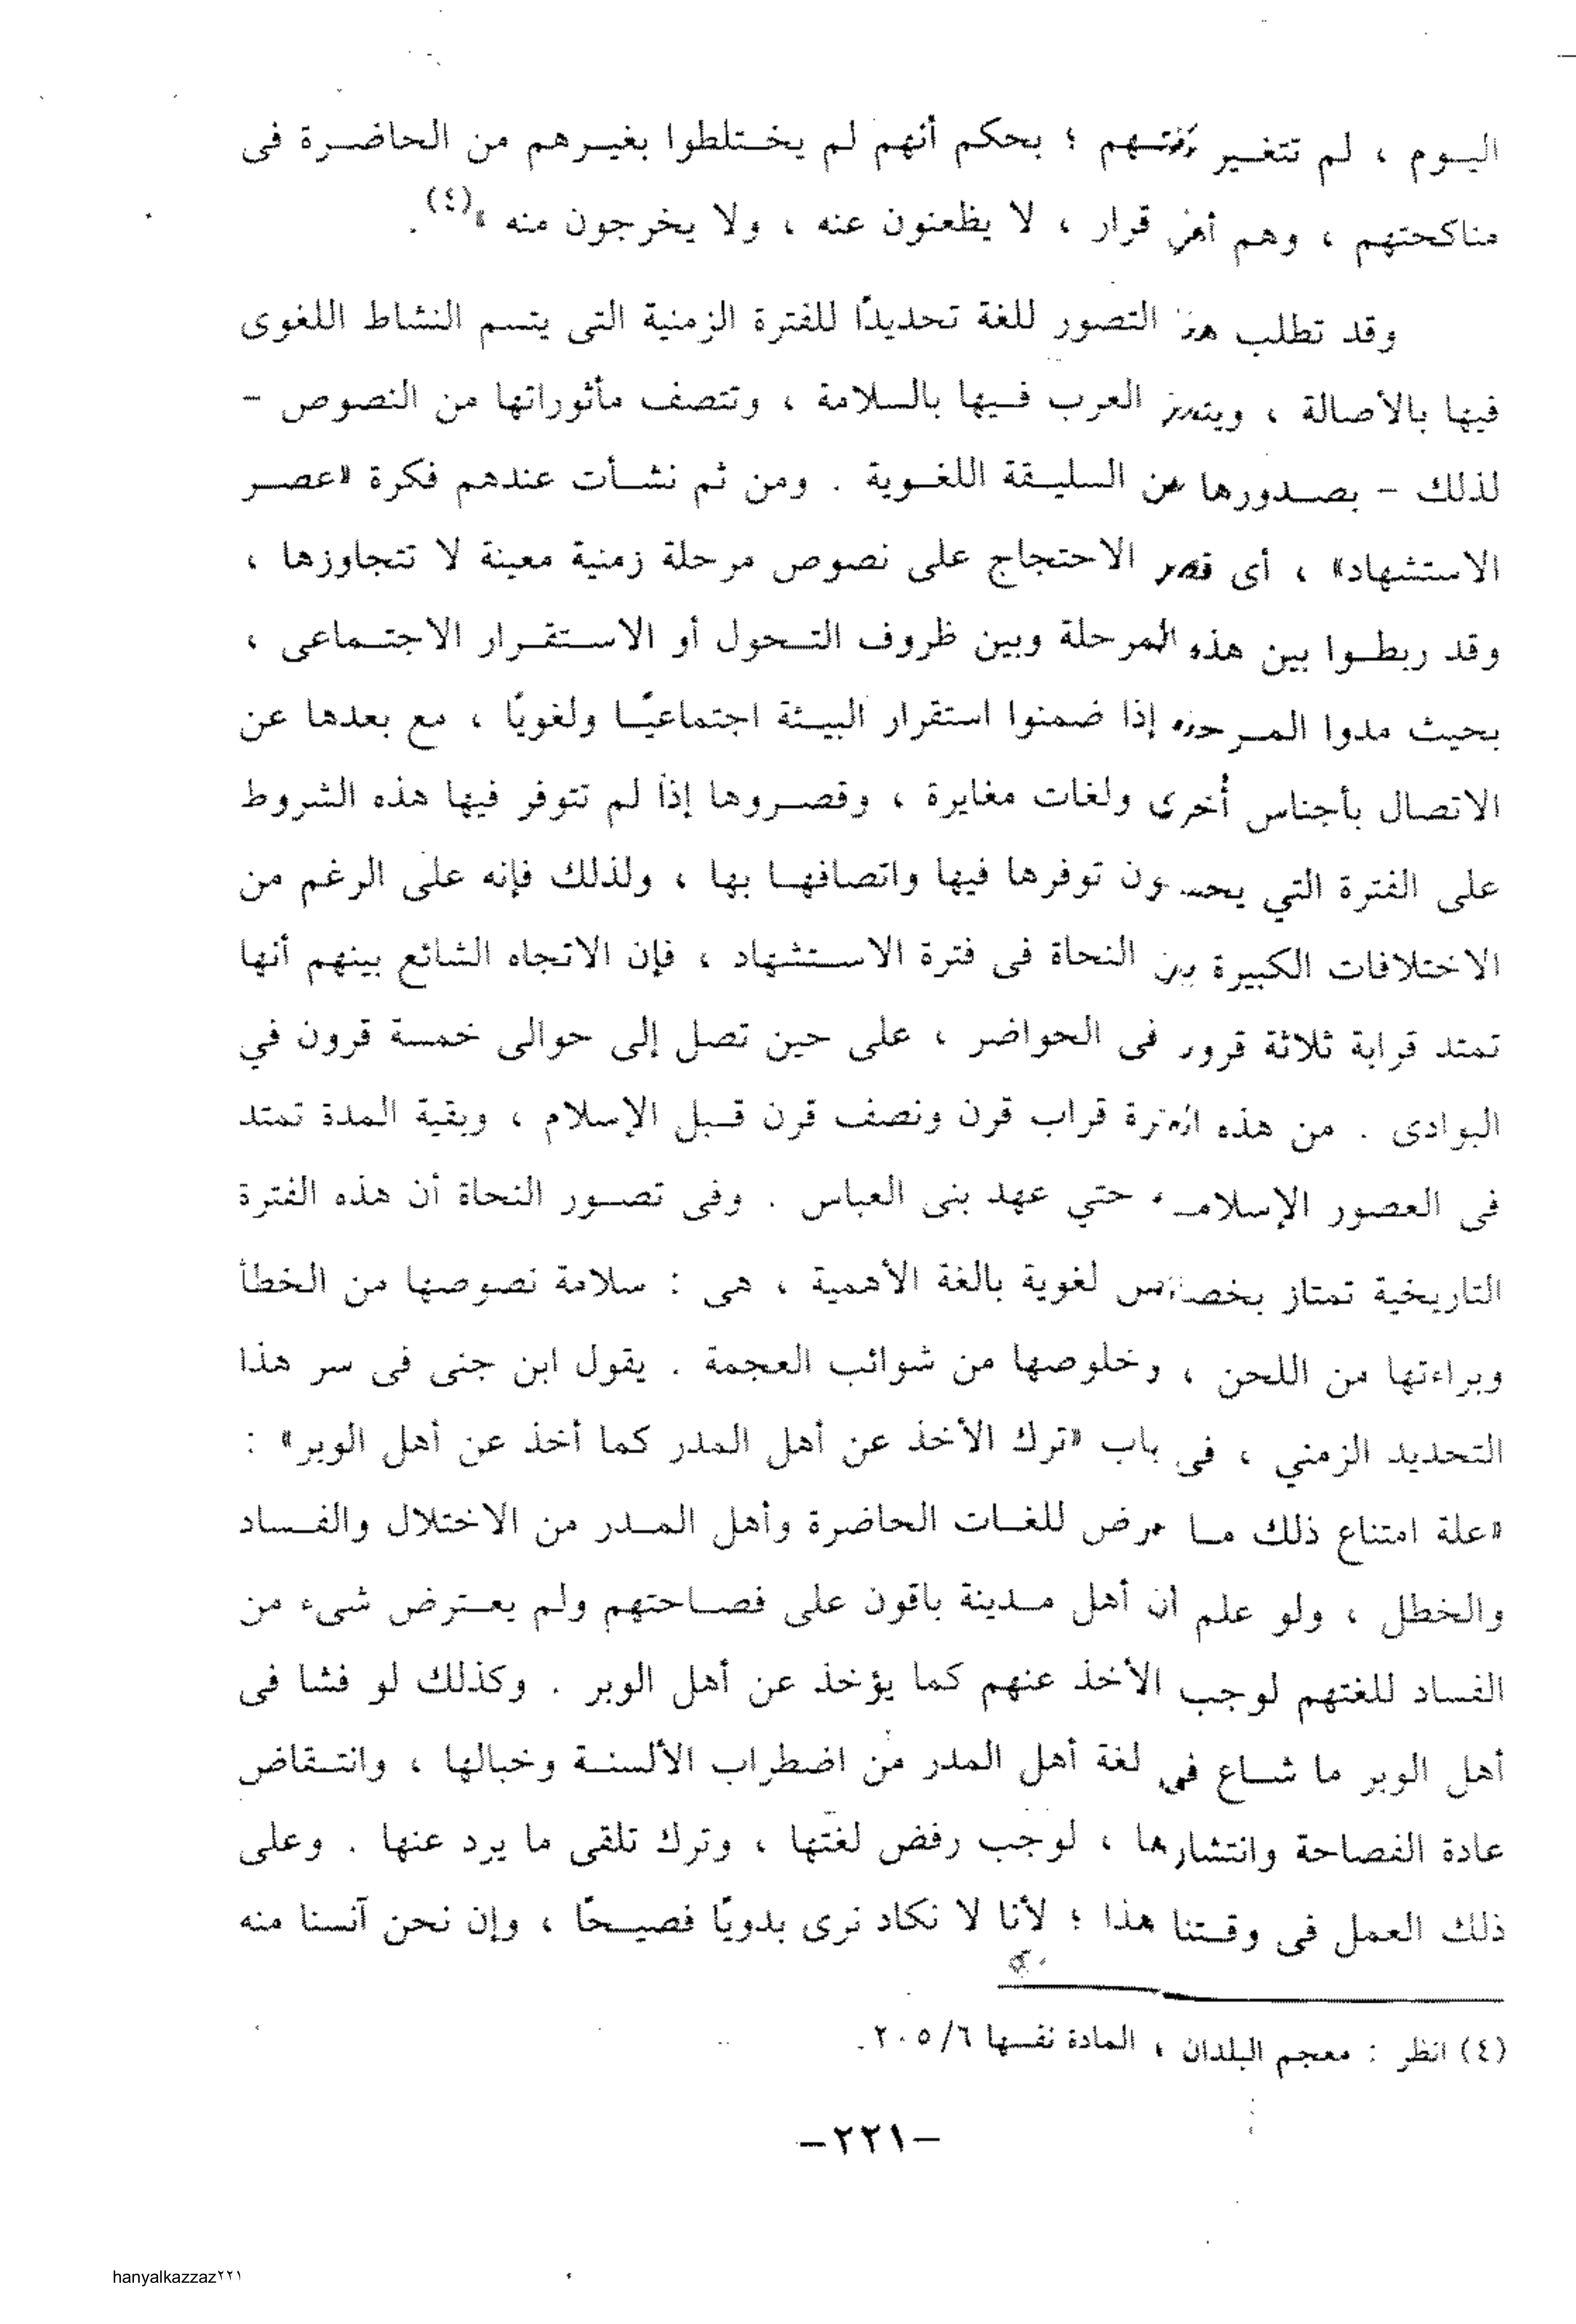 اليوم ، لم تتغير لغتهم ؛ بحكم أنهم لم يختلطوا بغيرهم من الحاضرة فى
مناكحتهم ، وهم أهل قرار ، لا يظعنون عنه ، ولا يخرجون منه »(٤) .
وقد تطلب هذا التصور للغة تحديدًا للفترة الزمنية التى يتسم النشاط اللغوى
فيها بالأصالة ، ويتميز العرب فيها بالسلامة ، وتتصف مأثوراتها من النصوص –
لذلك – بصدورها عن السليقة اللغوية . ومن ثم نشأت عندهم فكرة «عصر
الاستشهاد» ، أى قصر الاحتجاج على نصوص مرحلة زمنية معينة لا تتجاوزها ،
وقد ربطوا بين هذه المرحلة وبين ظروف التحول أو الاستقرار الاجتماعى ،
بحيث مدوا المرحلة إذا ضمنوا استقرار البيئة اجتماعيًا ولغويًا ، مع بعدها عن
الاتصال بأجناس أُخرى ولغات مغايرة ، وقصروها إذا لم تتوفر فيها هذه الشروط
على الفترة التي توفرها فيها واتصافها بها ، ولذلك فإنه على الرغم من
الاختلافات الكبيرة بين النحاة فى فترة الاستشهاد ، فإن الاتجاه الشائع بينهم أنها
تمتد قرابة ثلاثة قرون فى الحواضر ، على حين تصل إلى حوالى خمسة قرون في
البوادى . من هذه الفترة قراب قرن ونصف قرن قبل الإسلام ، وبقية المدة تمتد
فى العصور الإسلامية حتي عهد بنى العباس . وفى تصور النحاة أن هذه الفترة
التاريخية تمتاز بخصائص لغوية بالغة الأهمية ، هى : سلامة نصوصها من الخطأ
وبراءتها من اللحن ، وخلوصها من شوائب العجمة . يقول ابن جنى فى سر هذا
التحديد الزمني ، فى باب «ترك الأخذ عن أهل المدر كما أخذ عن أهل الوبر» :
«علة امتناع ذلك ما عرض للغات الحاضرة وأهل المدر من الاختلال والفساد
والخطل ، ولو علم أن أهل مدينة باقون على فصاحتهم ولم يعترض شىء من
الفساد للغتهم لوجب الأخذ عنهم كما يؤخذ عن أهل الوبر . وكذلك لو فشا فى
أهل الوبر ما شاع فى لغة أهل المدر من اضطراب الألسنة وخبالها ، وانتقاض
عادة الفصاحة وانتشارها ، لوجب رفض لغتها ، وترك تلقى ما يرد عنها . وعلى
ذلك العمل فى وقتنا هذا ؛ لأنا لا نكاد نرى بدويًا فصيحًا ، وإن نحن آنسنا منه
(٤) انظر : معجم البلدان ، المادة نفسها ٢٠٥/٦ .
–٢٢١–
hanyalkazzaz٢٢١